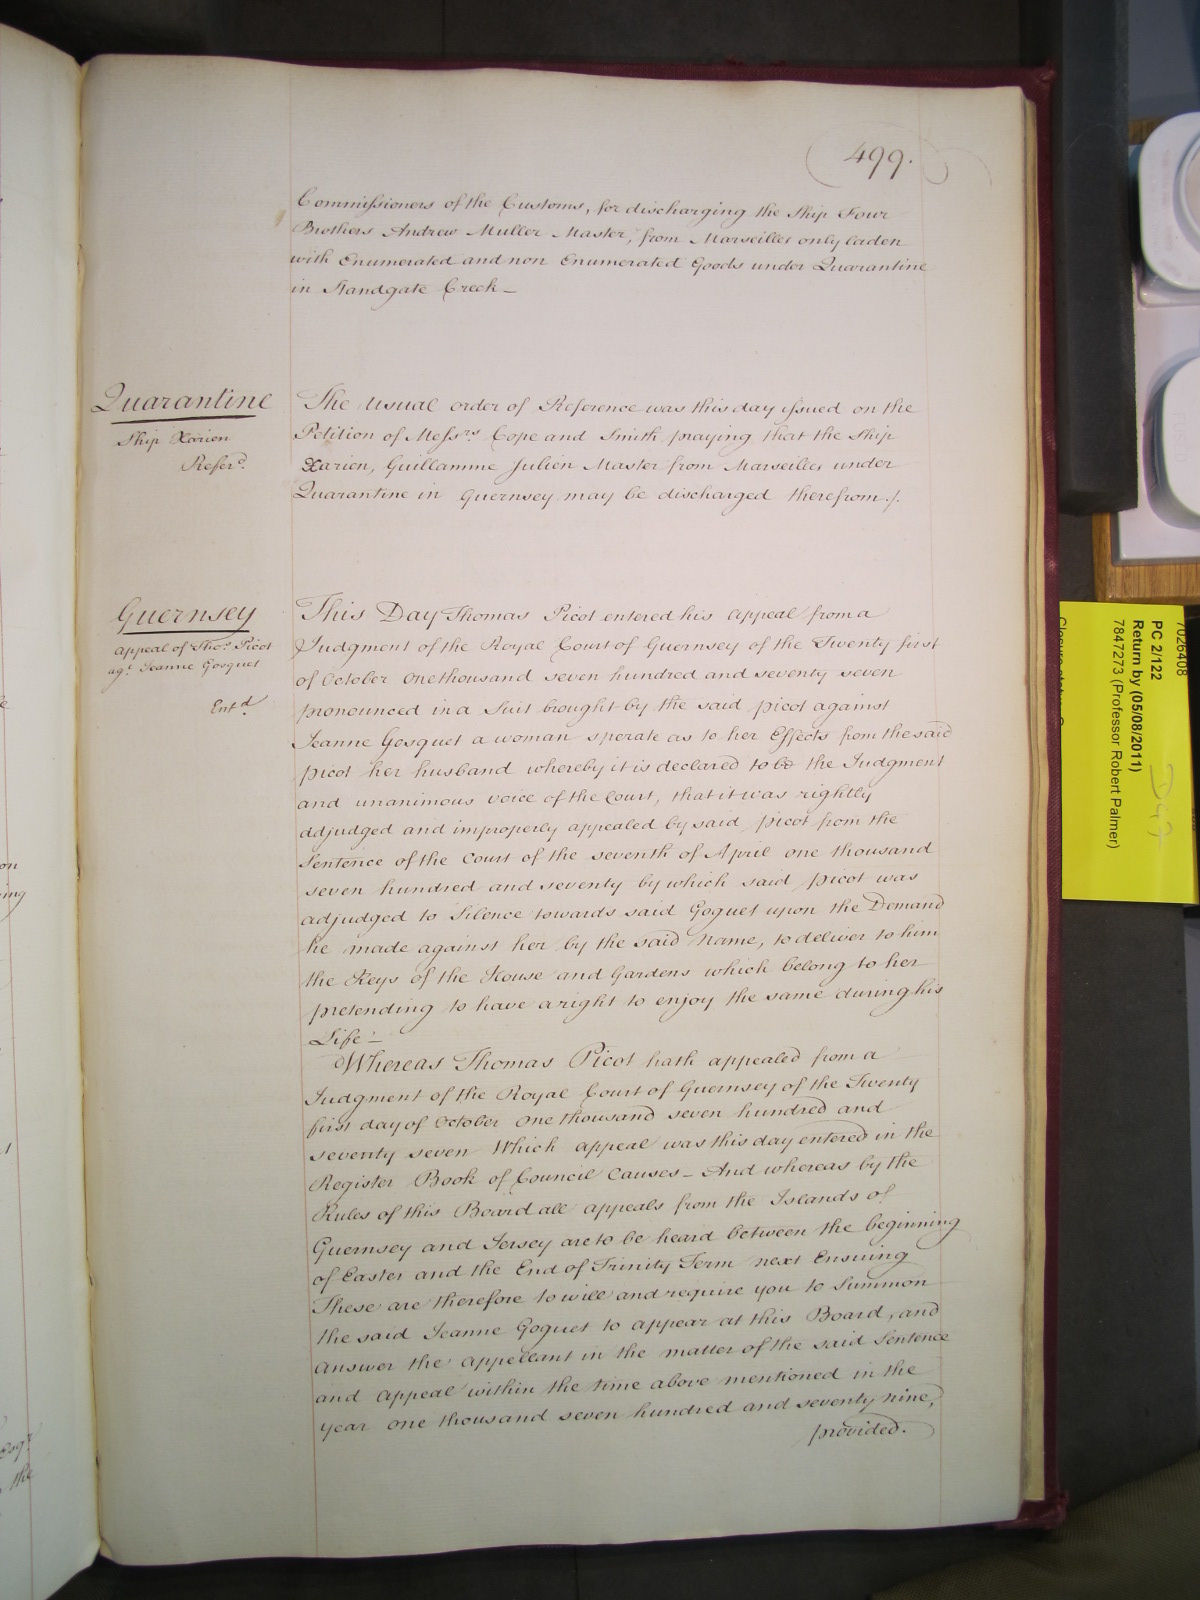 499.
Commissioners of the Customs, for discharging the Ship Four
Brothers Andrew Muller Master, from Marseilles only laden
with Enumerated and non Enumerated Goods under Quarantine
in Standgate Creek—
Quarantine
Ship Xarien
Refer.d
The usual order of Reference was this day issued on the
Petition of Mess.rs Cope and Smith praying that the Ship
Xarien, Guillamme Julien Master from Marseilles under
Quarantine in Guernsey may be discharged therefrom./.
Guernsey
Appeal of Tho.s Picot
ag.t Jeanne Gosquet
Ent.d
This Day Thomas Picot entered his appeal from a
Judgment of the Royal Court of Guernsey of the Twenty first
of October one thousand seven hundred and seventy seven
pronounced in a Suit brought by the said picot against
Jeanne Gosquet a woman sperate as to her Effects from the said
picot her husband whereby it is declared to be the Judgment
and unanimous voice of the Court, that it was rightly
adjudged and improperly appealed by said picot from the
Sentence of the Court of the seventh of April one thousand
seven hundred and seventy by which said picot was
adjudged to Silence towards said Goguet upon the Demand
he made against her by the said Name, to deliver to him
the Keys of the House and Gardens which belong to her
pretending to have a right to enjoy the same during his
Life—
Whereas Thomas Picot hath appealed from a
Judgment of the Royal Court of Guernsey of the Twenty
first day of October one thousand seven hundred and
seventy seven Which appeal was this day entered in the
Register Book of Council Causes— And whereas by the
Rules of this Board all appeals from the Islands of
Guernsey and Jersey are to be heard between the beginning
of Easter and the End of Trinity Term next Ensuing
These are therefore to will and require you to Summon
the said Jeanne Goguet to appear at this Board, and
answer the appellant in the matter of the said Sentence
and appeal within the time above mentioned in the
year one thousand seven hundred and seventy nine,
provided.
7026408
PC 2/122
Return by (05/08/2011)
7847273 (Professor Robert Palmer)